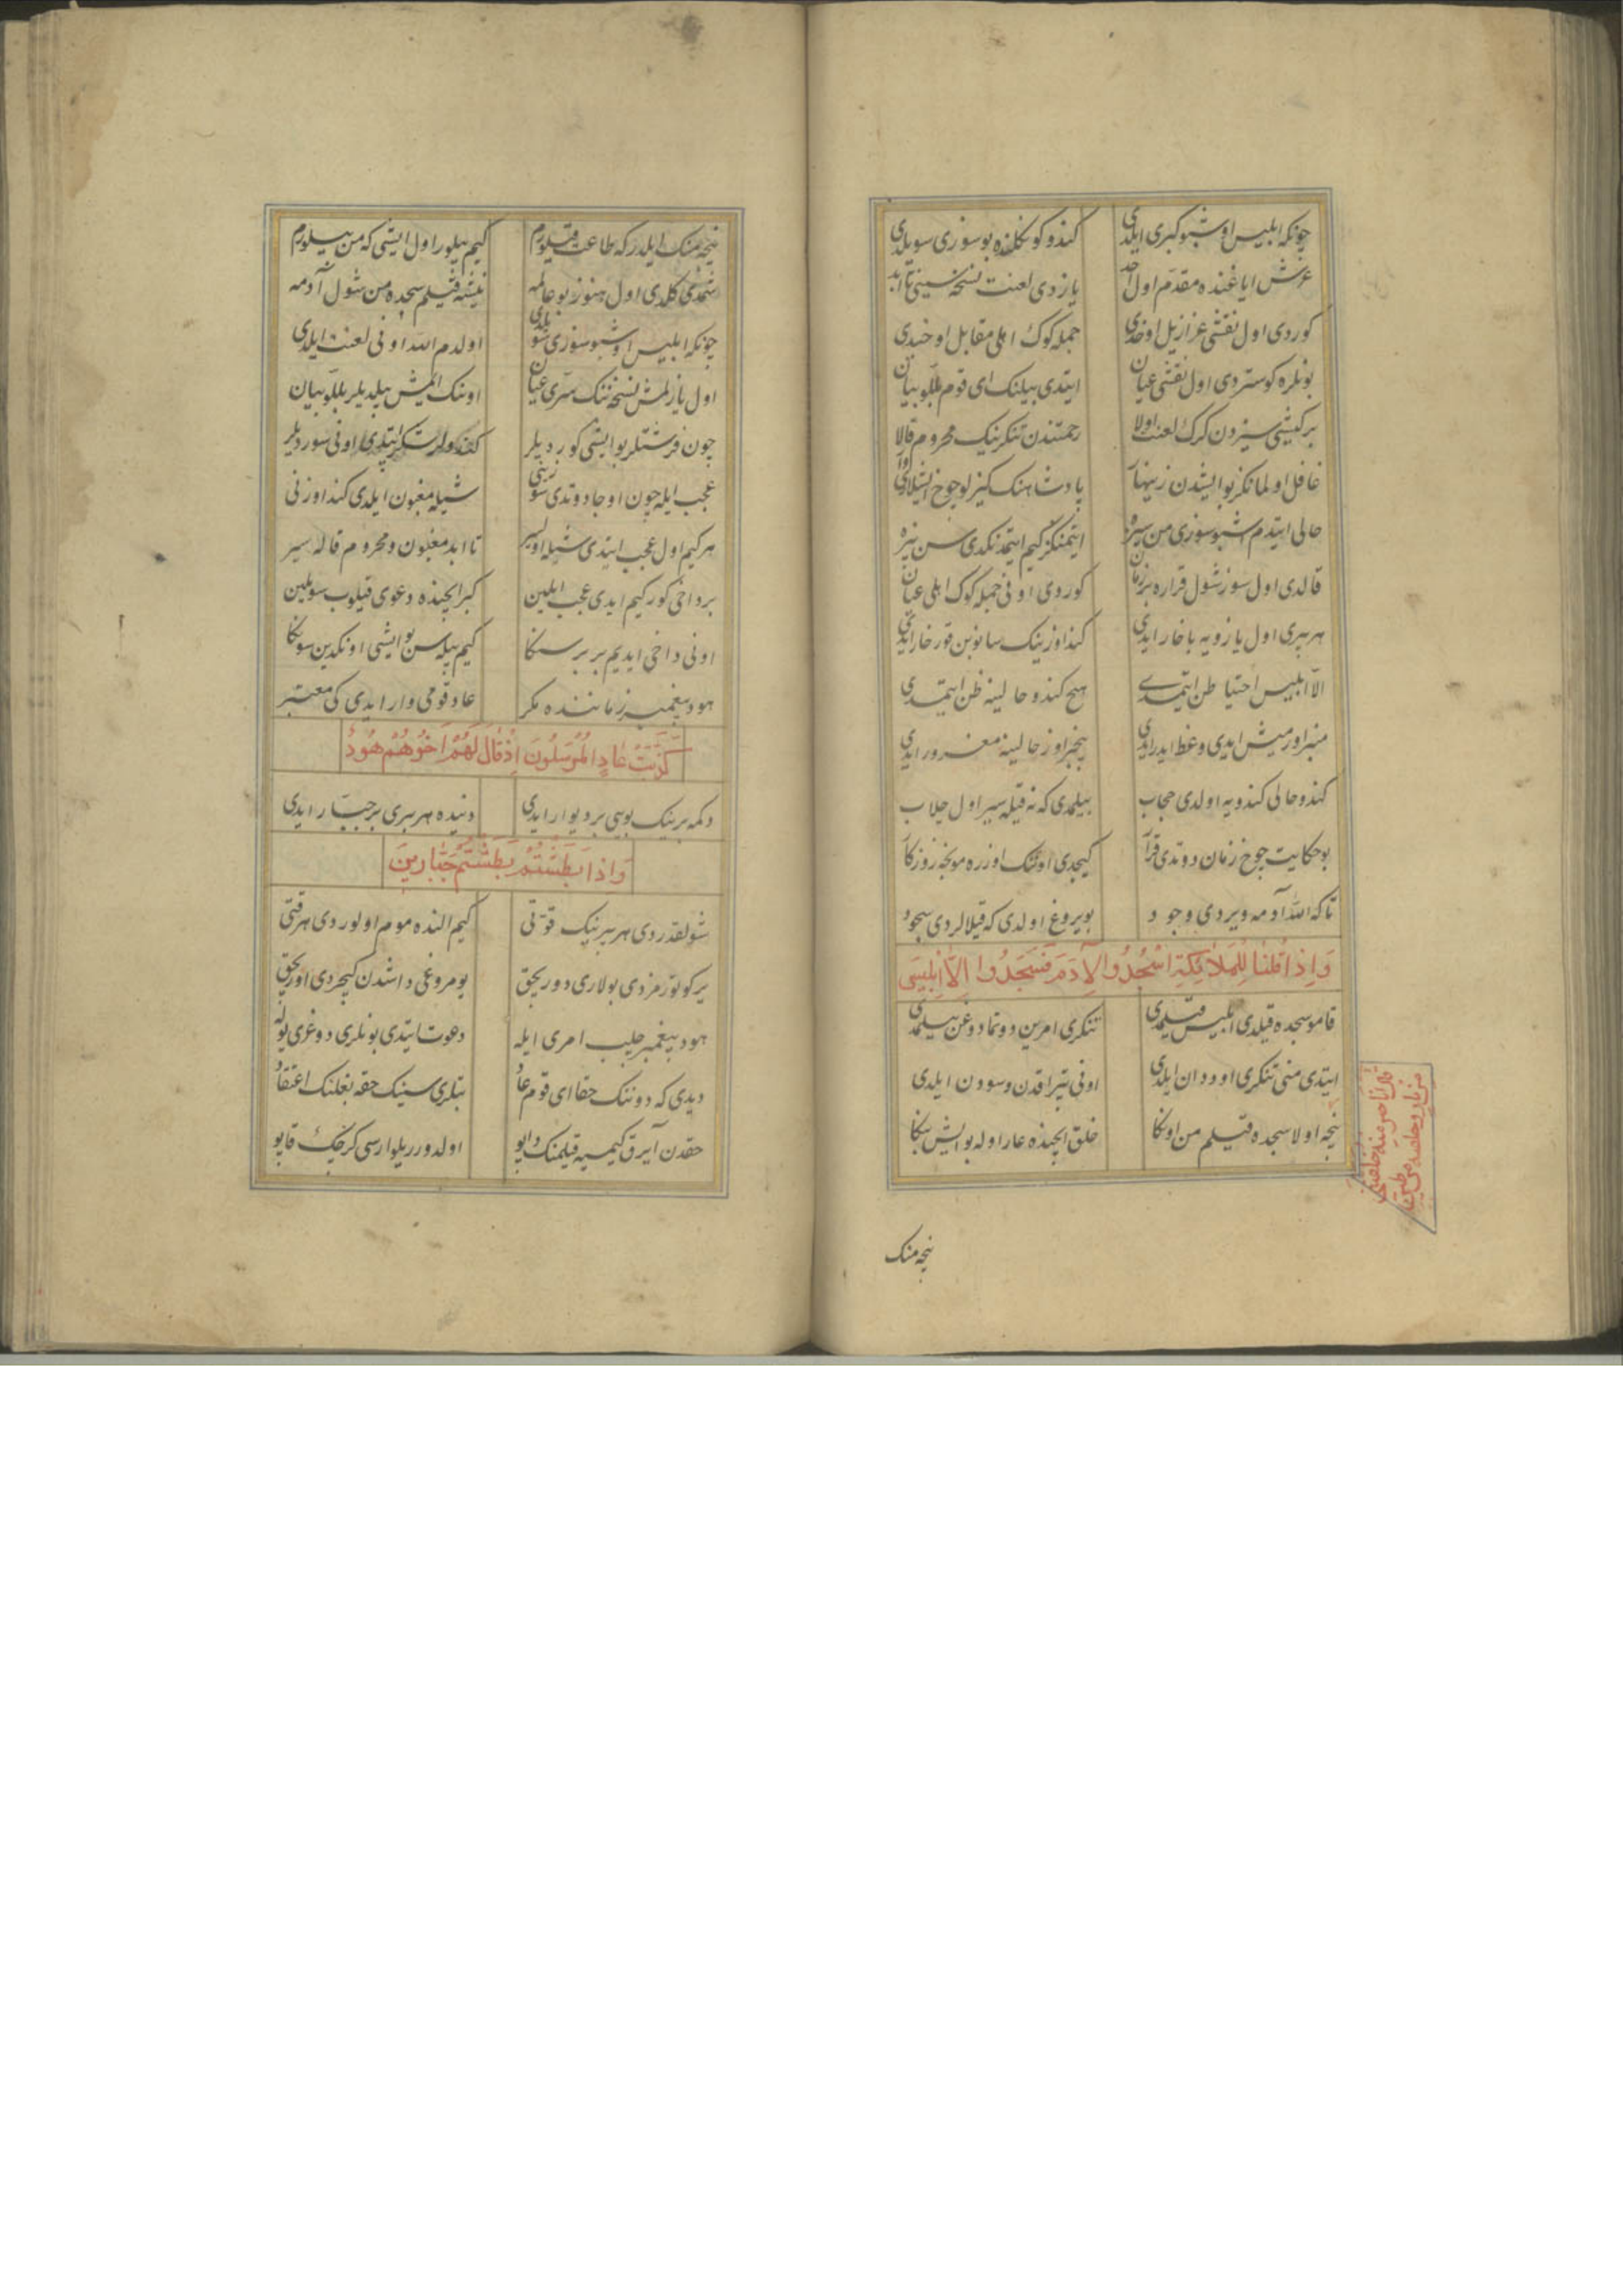 چونکه ابلیس اوشبو کبری ایلدی کندو کوکلنده بو سوزی سویلدی
عرش ایاغنده مقدم اول احد یازدی لعنت نسخه سینی تا ابد
کوردی اول نقشی عزازیل اوخدی جمله کوک اهلی مقابل اوخیدی
بونلره کوستردی اول نقشی عیان ایتدی بیلنک ای قوم بللو بیان
برکیشی سیزدن کرک لعنت اولا رحمتندن تنکرینک محروم قالا
غافل اولمانکز بو ایشدن زینهار
حالی ایتدم اشبو سوزی من سیزه
قالدی اول سوز شول قراره بر زمان کوردی اونی جمله کوک اهلی عیان
هر بیری اول یازویه باخار ایدی کنداوزینک سانوبن قورخار ایدی
الا ابلیس احتیاطن ایتمدی هیچ کندو حالینه ظن ایتمدی
منبر اورمیش ایدی وعظ ایدر ایدی بیخبر اوز حالینه مغرور ایدی
کندو حالی کندویه اولدی حجاب بیلمدی که نه قیله سیر اول جلاب
بو حکایت چوخ زمان دوتدی قرار کیجدی اوننک اوزره مونجه روزکار
تاکه الله آدمه ویردی وجود بویروغ اولدی که قیلالردی سجود
وَاِذ قُلنَا لِلمَلائِكَةِ اسْجُدُوا لِآدَمَ فَسَجَدُوا اِلَّا اِبْلِيسَ
قامو سجده قیلدی ابلیس قیلمدی تنکری امرین دوتمادوغن بیلمدی
ایتدی منی تنکری اوددان ایلدی اونی تپراقدن وسوودن ایلدی
نیجه اولا سجده قیلم من اونکا خلق ایچنده عار اوله بو ایش بنکا
قال انا خیر منه خلقتنی
من نار وخلقته من طین
نیجه منک
نیجه منک ایلدر که طاعت قیلورم کیم بیلور اول ایشی که من بیلورم
شمدی کلدی اول هنوز بو عالمه نیشه قیلم سجده من شول آدمه
چونکه ابلیس اوشبو سوزی سویلدی اولدم الله اونی لعنت ایلدی
اول یازلمش نسخه ننک سری عیان اوننک ایمش بیلدیلر بللو بیان
چون فرشتلر بو ایشی کوردیلر اونی سوردیلر
عجب ایله چون اوجا دوتدی سوزنی شیله مغبون ایلدی کنداوزنی
هرکیم اول عجب ایتدی شیله اولیسر تا ابد مغبون ومحروم قالیسر
برداخی کور کیم ایدی عجب ایلین کبر ایچنده دعوی قیلوب سویلین
اونی داخی ایدیم بر بر سنکا کیم بیله سن بو ایشی اونکدین سونکا
هود پیغمبر زماننده مکر عاد قومی وار ایدی کی معتبر
كَذَّبَتْ عَادٍ المُرْسَلُونَ اِذْ قَالَ لَهُمْ اَخُوهُمْ هُودٌ
دکمه برینک بویی بر دیوار ایدی دنیده هر بیری بر جبّار ایدی
وَاِذَا بَطَشْتُمْ بَطَشْتُمْ جَبَّارِينَ
شولقدردی هر بیرینک قوّتی کیم النده موم اولوردی هر قتی
یر کوتورمزدی بولاری دوریجق یومروغی داشدن کیچردی اوریجق
هود پیغمبر جلب امری ایله دعوت ایتدی بونلری دوغری یوله
دیدی که دوننک حقا ای قوم عاد بتلری سینک حقه بغلنک اعتقاد
حقدن آیرق کیمسیه قیلمنک داپو